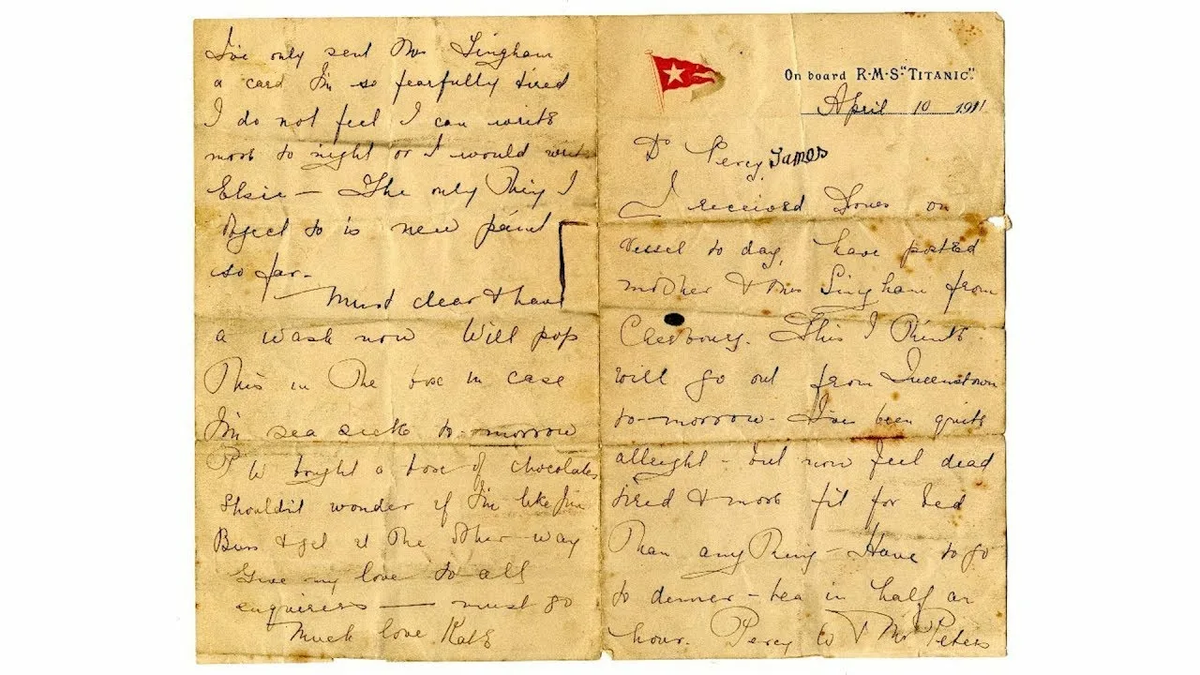 On board R·M·S·"TITANIC".
April 10 1911
Dr Percy James
I received Yours on
vessel to day, have posted
mother & Mrs Lingham from
Cherbourg. This I think
will go out from Queenstown
to-morrow - I've been quite
allright - but now feel dead
tired & more fit for bed
than any thing - Have to go
to dinner - tea in half an
hour. Percy W & Mr Peters
I've only sent Mrs Lingham
a card I'm so fearfully tired
I do not feel I can write
more to night or I would write
Elsie - The only thing I
object to is new paint
so far -
Must clear & have
a wash now Will pop
this in the box in case
I'm sea sick to-morrow
P W bought a box of chocolates
Shouldn't wonder if I'm like Jim
& get it the other way
Give my love to all
enquirers - must go
Much love Kate